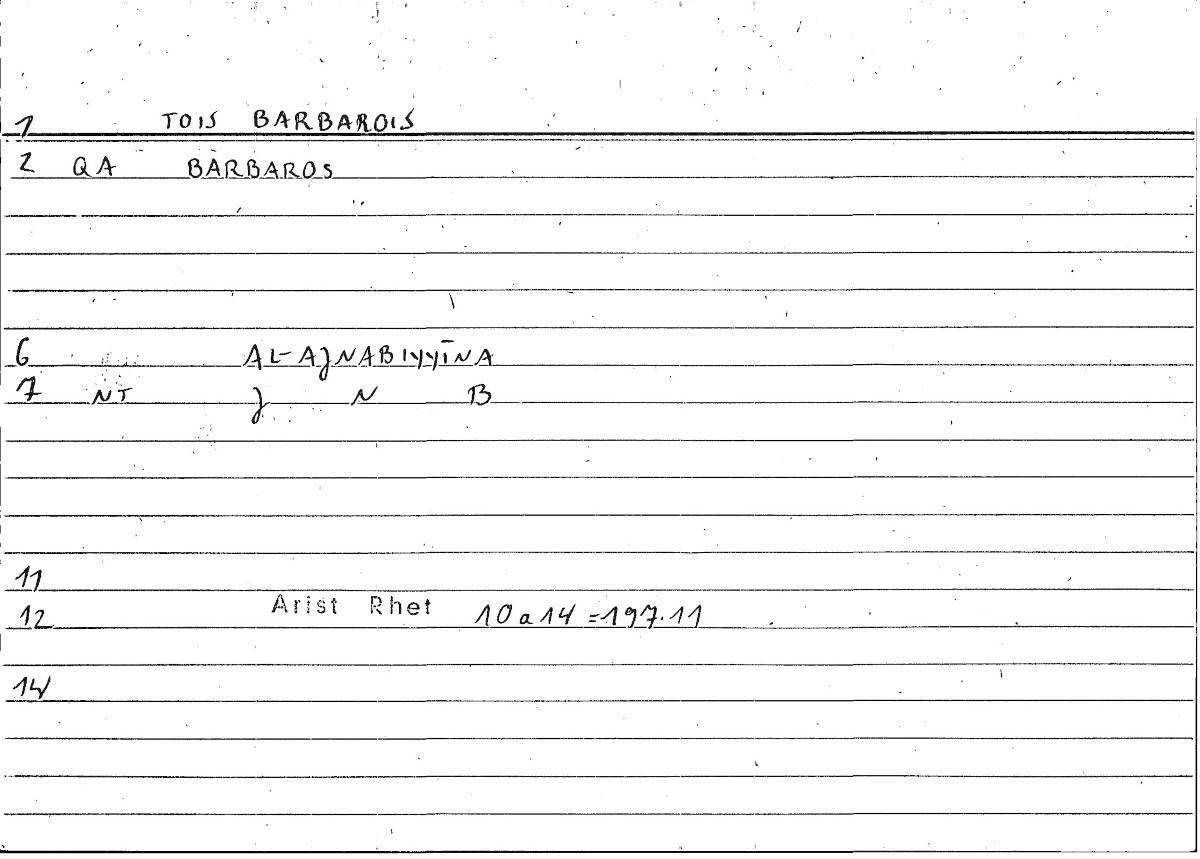 1 TOIS BARBAROIS
2 QA BARBAROS
6 AL-AJNABIYYĪNA
7 NT J N B
11
12 Arist Rhet 10a14=197.11
14